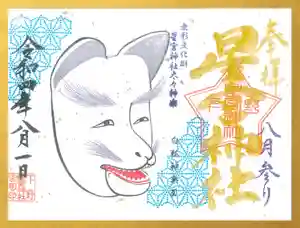 奉拝
星宮神社
八月参り
無形文化財
星宮神社太々神楽
白狐神楽面
令和四年八月一日